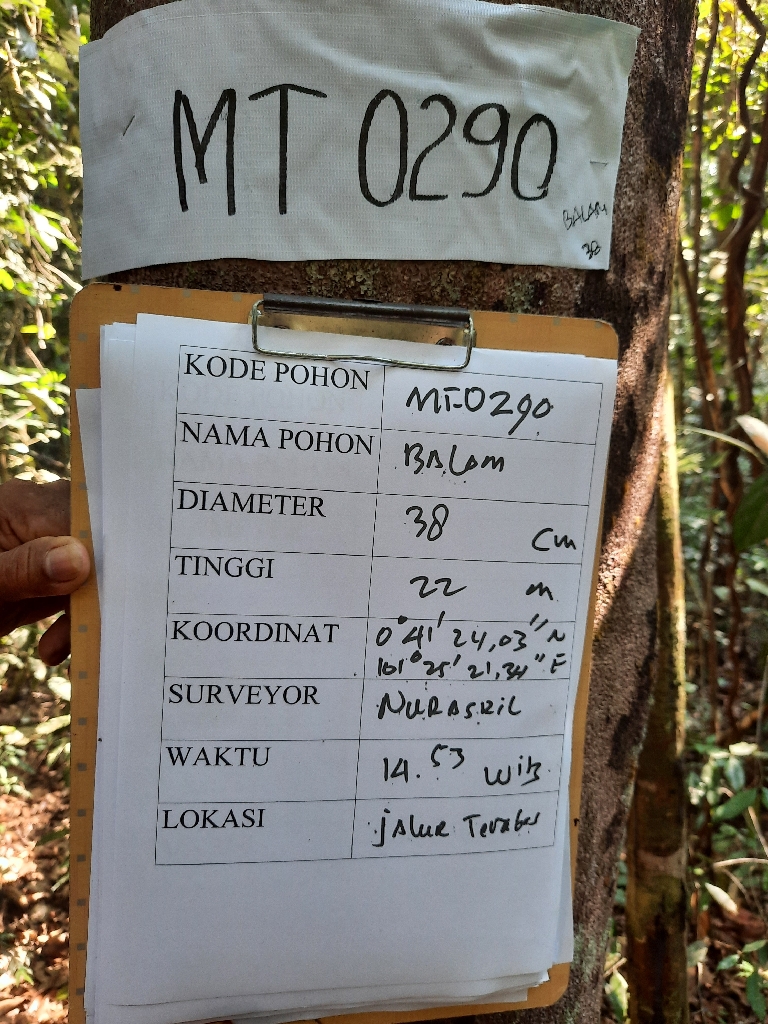 MT 0290
BALAM
38
KODE POHON MT-0290
NAMA POHON BALAM
DIAMETER 38 Cm
TINGGI 22 m
KOORDINAT 0°41'24,03"N
101°25'21,34"E
SURVEYOR NURASRIL
WAKTU 14.53 WIB
LOKASI jALUR